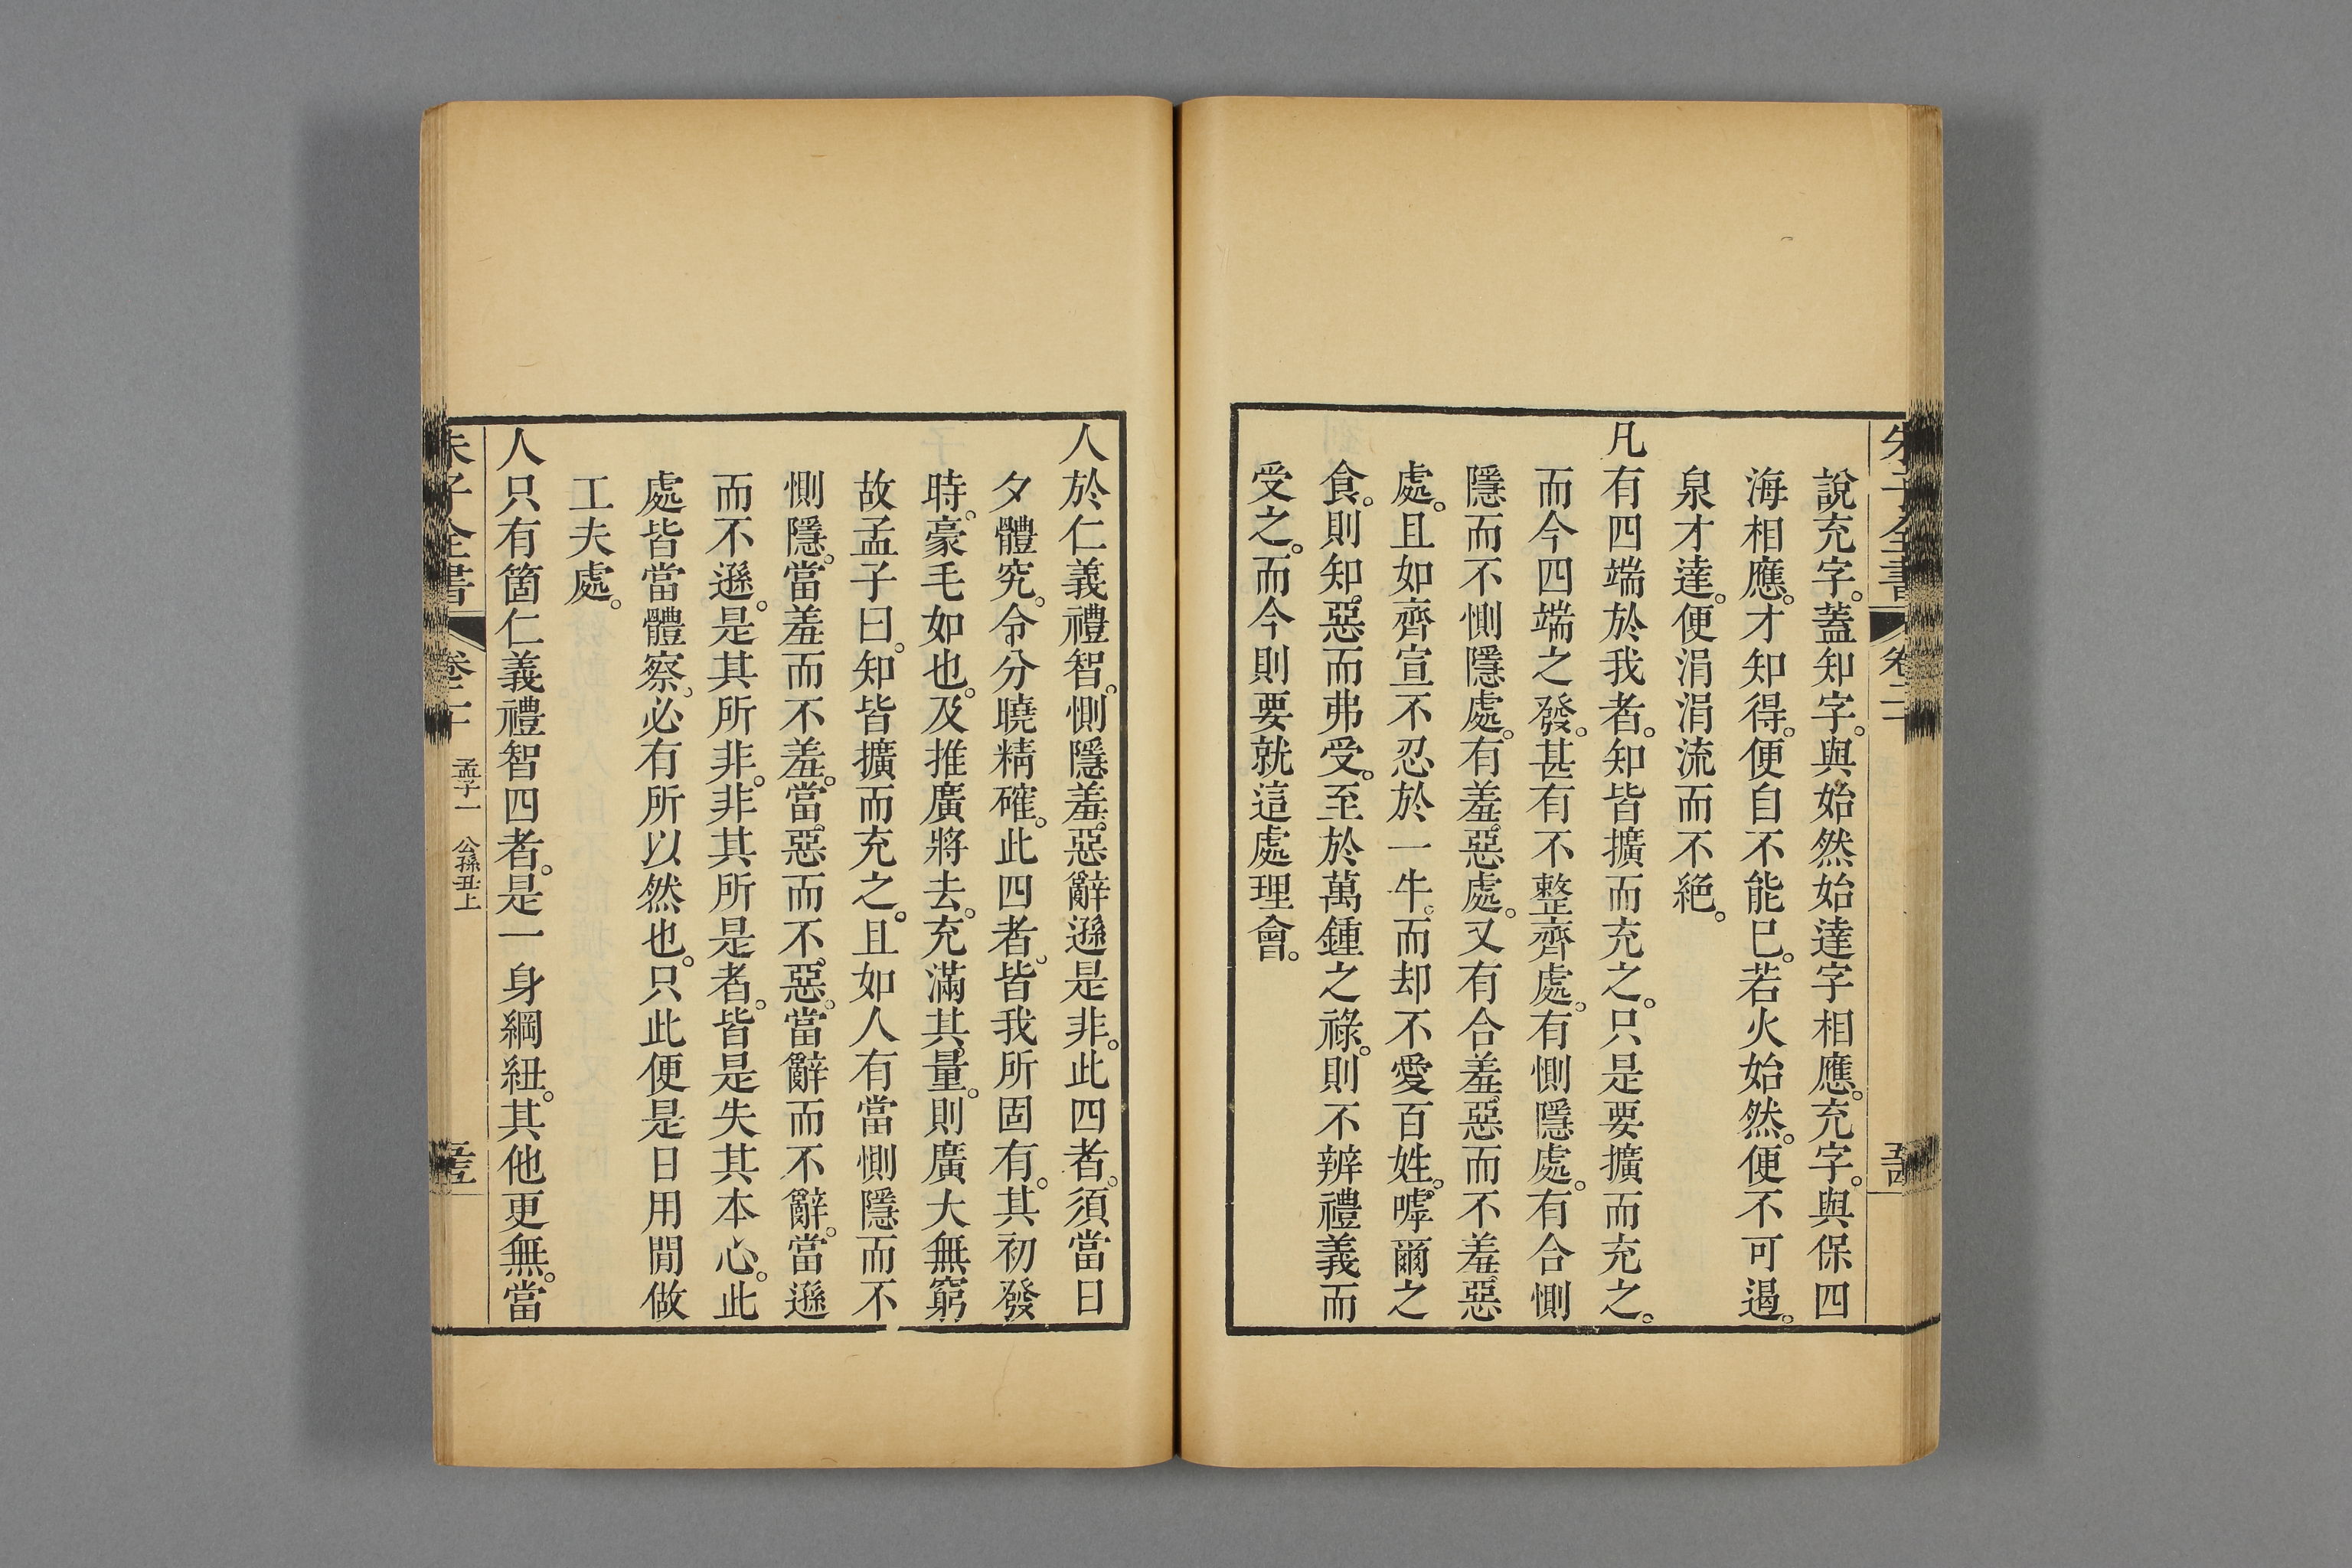 朱子全書 卷二十 
說充字。蓋知字。與始然始達字相應。充字。與保四
海相應。才知得。便自不能已。若火始然。便不可遏。
泉才達。便涓涓流而不絕。
凡有四端於我者。知皆擴而充之。只是要擴而充之。
而今四端之發。甚有不整齊處。有惻隱處。有合惻
隱而不惻隱處。有羞惡處。又有合羞惡而不羞惡
處。且如齊宣不忍於一牛。而却不愛百姓。嘑爾之
食。則知惡而弗受。至於萬鍾之祿。則不辨禮義而
受之。而今則要就這處理會。
人於仁義禮智。惻隱羞惡辭遜是非。此四者。須當日
夕體究。令分曉精確。此四者。皆我所固有。其初發
時。豪毛如也。及推廣將去。充滿其量。則廣大無窮
故孟子曰。知皆擴而充之。且如人有當惻隱而不
惻隱。當羞而不羞。當惡而不惡。當辭而不辭。當遜
而不遜。是其所非。非其所是者。皆是失其本心。此
處皆當體察。必有所以然也。只此便是日用閒做
工夫處。
人只有箇仁義禮智四者。是一身綱紐。其他更無。當
朱子全書 卷二十 孟子一 公孫丑上